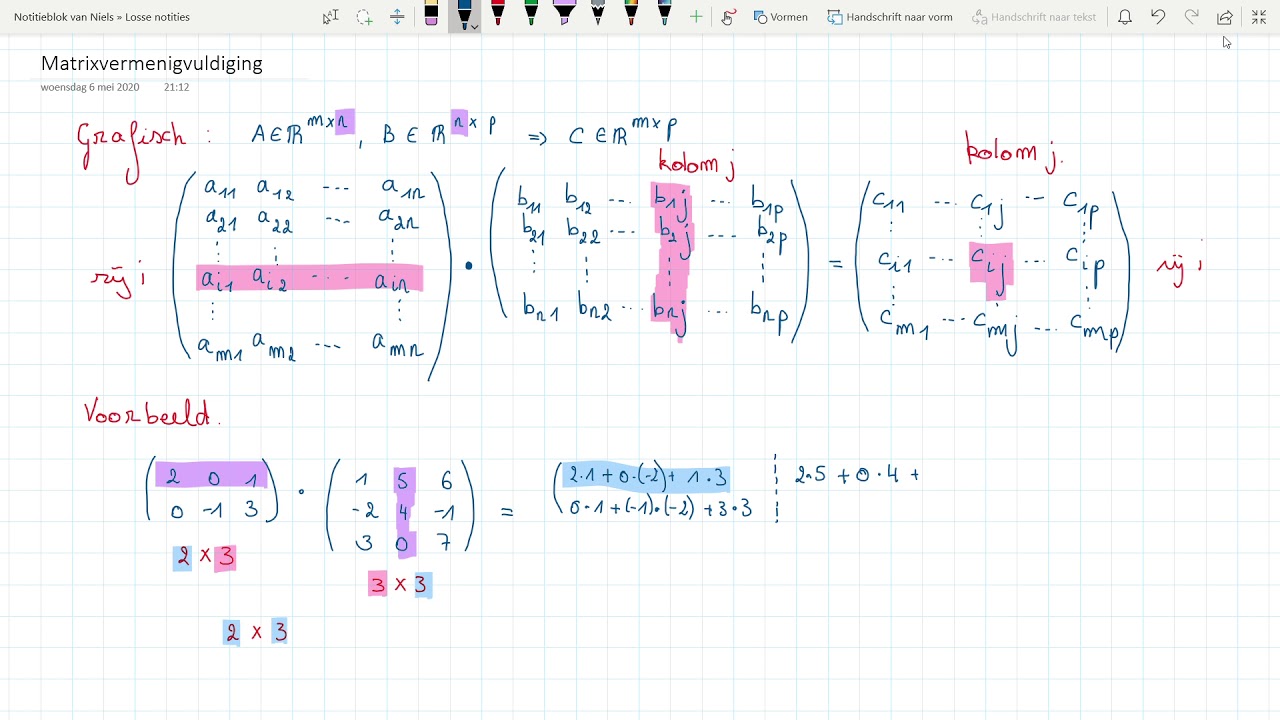 Notitieblok van Niels » Losse notities
Vormen Handschrift naar vorm Handschrift naar tekst
Matrixvermenigvuldiging
woensdag 6 mei 2020 21:12
Grafisch : A ∈ ℝ^{m×n}, B ∈ ℝ^{n×p} ⇒ C ∈ ℝ^{m×p}
kolom j kolom j.
a₁₁ a₁₂ ... a₁ₙ
a₂₁ a₂₂ ... a₂ₙ
⋮ ⋮ ⋮
rij i a_{i1} a_{i2} ... a_{in}
⋮ ⋮
a_{m1} a_{m2} ... a_{mn}
·
b₁₁ b₁₂ ... b_{1j} ... b_{1p}
b₂₁ b₂₂ ... b_{2j} ... b_{2p}
⋮ ⋮ ⋮ ⋮
b_{n1} b_{n2} ... b_{nj} ... b_{np}
=
c₁₁ ... c_{1j} ... c_{1p}
⋮ ⋮
c_{i1} ... c_{ij} ... c_{ip} rij i
⋮ ⋮
c_{m1} ... c_{mj} ... c_{mp}
Voorbeeld.
2 0 1
0 -1 3
·
1 5 6
-2 4 -1
3 0 7
=
2·1 + 0·(-2) + 1·3 2·5 + 0·4 +
0·1 + (-1)·(-2) + 3·3
2 × 3
3 × 3
2 × 3